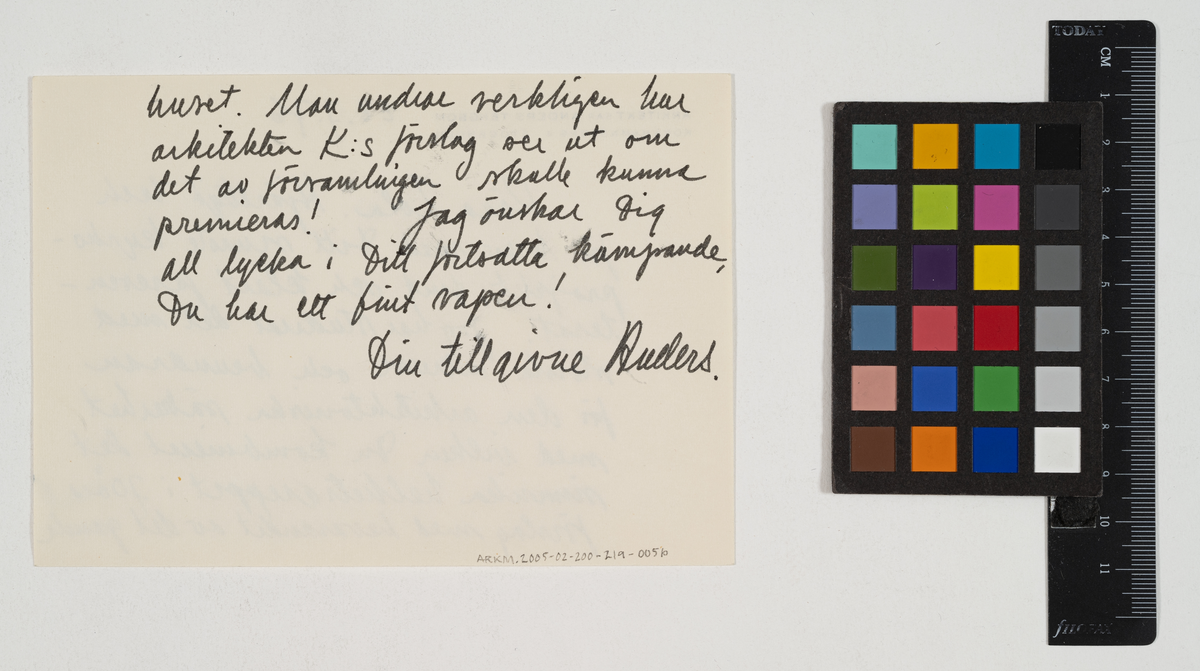 huset. Man undrar verkligen hur
arkitekten K:s förslag ser ut om
det av församlingen skulle kunna
premieras! Jag önskar Dig
all lycka i Ditt fortsatta kämpande,
Du har ett fint vapen!
Din tillgivne Anders.
ARKM.2005-02-200-219-0056
TODAY
CM
1
2
3
4
5
6
7
8
9
10
11